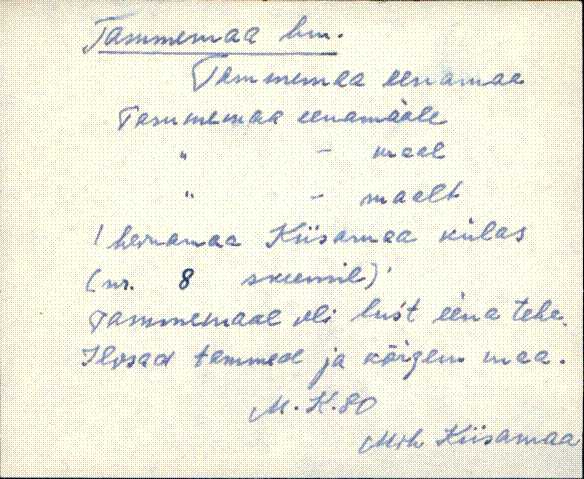 Tammemaa hm.
Tammemaa eenamaa
Tammemaa eenamäale
" - maal
" - maalt
! heinamaa Kiisamaa külas
(nr. 8 skeemil)
Tammemaal oli lust eena tehe.
Ilosad tammed ja kõrgem maa.
M. K. 80
Mih Kiisamaa